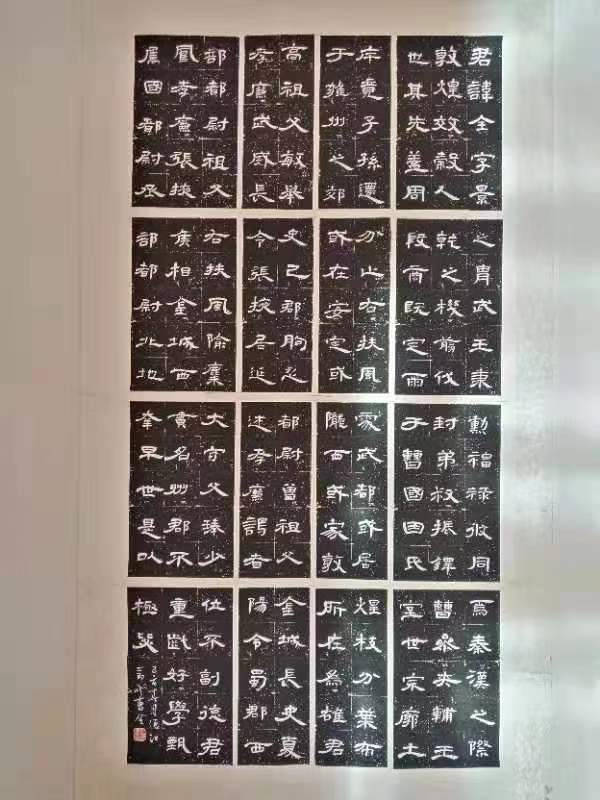 君諱全字景
敦煌效穀人
也其先蓋周
之胄武王秉
乾之機翦伐
殷商既定爾
勳福祿攸同
封弟叔振鐸
于曹國因氏
焉秦漢之際
曹參夾輔王
室世宗廓土
斥竟子孫遷
于雍州之郊
分止右扶風
或在安定或
處武都或居
隴西或家敦
煌枝分葉布
所在為雄君
高祖父敏舉
孝廉武威長
史巴郡朐忍
令張掖居延
都尉曾祖父
述孝廉謁者
金城長史夏
陽令蜀郡西
部都尉祖父
鳳孝廉張掖
屬國都尉丞
右扶風隃麋
侯相金城西
部都尉北地
大守父琫少
貫名州郡不
幸早世是以
位不副德君
童齔好學甄
極毖